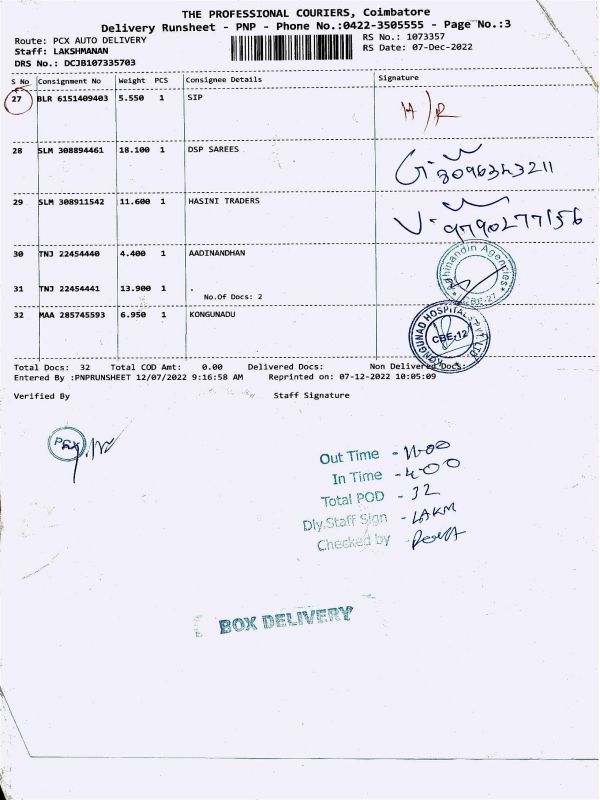 THE PROFESSIONAL COURIERS, Coimbatore
Delivery Runsheet - PNP - Phone No.:0422-3505555 - Page No.:3
Route: PCX AUTO DELIVERY RS No.: 1073357
Staff: LAKSHMANAN RS Date: 07-Dec-2022
DRS No.: DCJB107335703
S No Consignment No Weight PCS Consignee Details Signature
27 BLR 6151409403 5.550 1 SIP H/R
28 SLM 308894461 18.100 1 DSP SAREES
29 SLM 308911542 11.600 1 HASINI TRADERS 9790277156
30 TNJ 22454440 4.400 1 AADINANDHAN
Adhinandin Agencies
CBE-27
31 TNJ 22454441 13.900 1 .
No.Of Docs: 2
32 MAA 285745593 6.950 1 KONGUNADU
KONGUNAD HOSPITALS PVT.LTD.
CBE-12
Total Docs: 32 Total COD Amt: 0.00 Delivered Docs: Non Delivered Docs:
Entered By :PNPRUNSHEET 12/07/2022 9:16:58 AM Reprinted on: 07-12-2022 10:05:09
Verified By Staff Signature
PCX
Out Time - 11.00
In Time - 4.00
Total POD - 32
Dly.Staff Sign - LAKM
Checked by
BOX DELIVERY